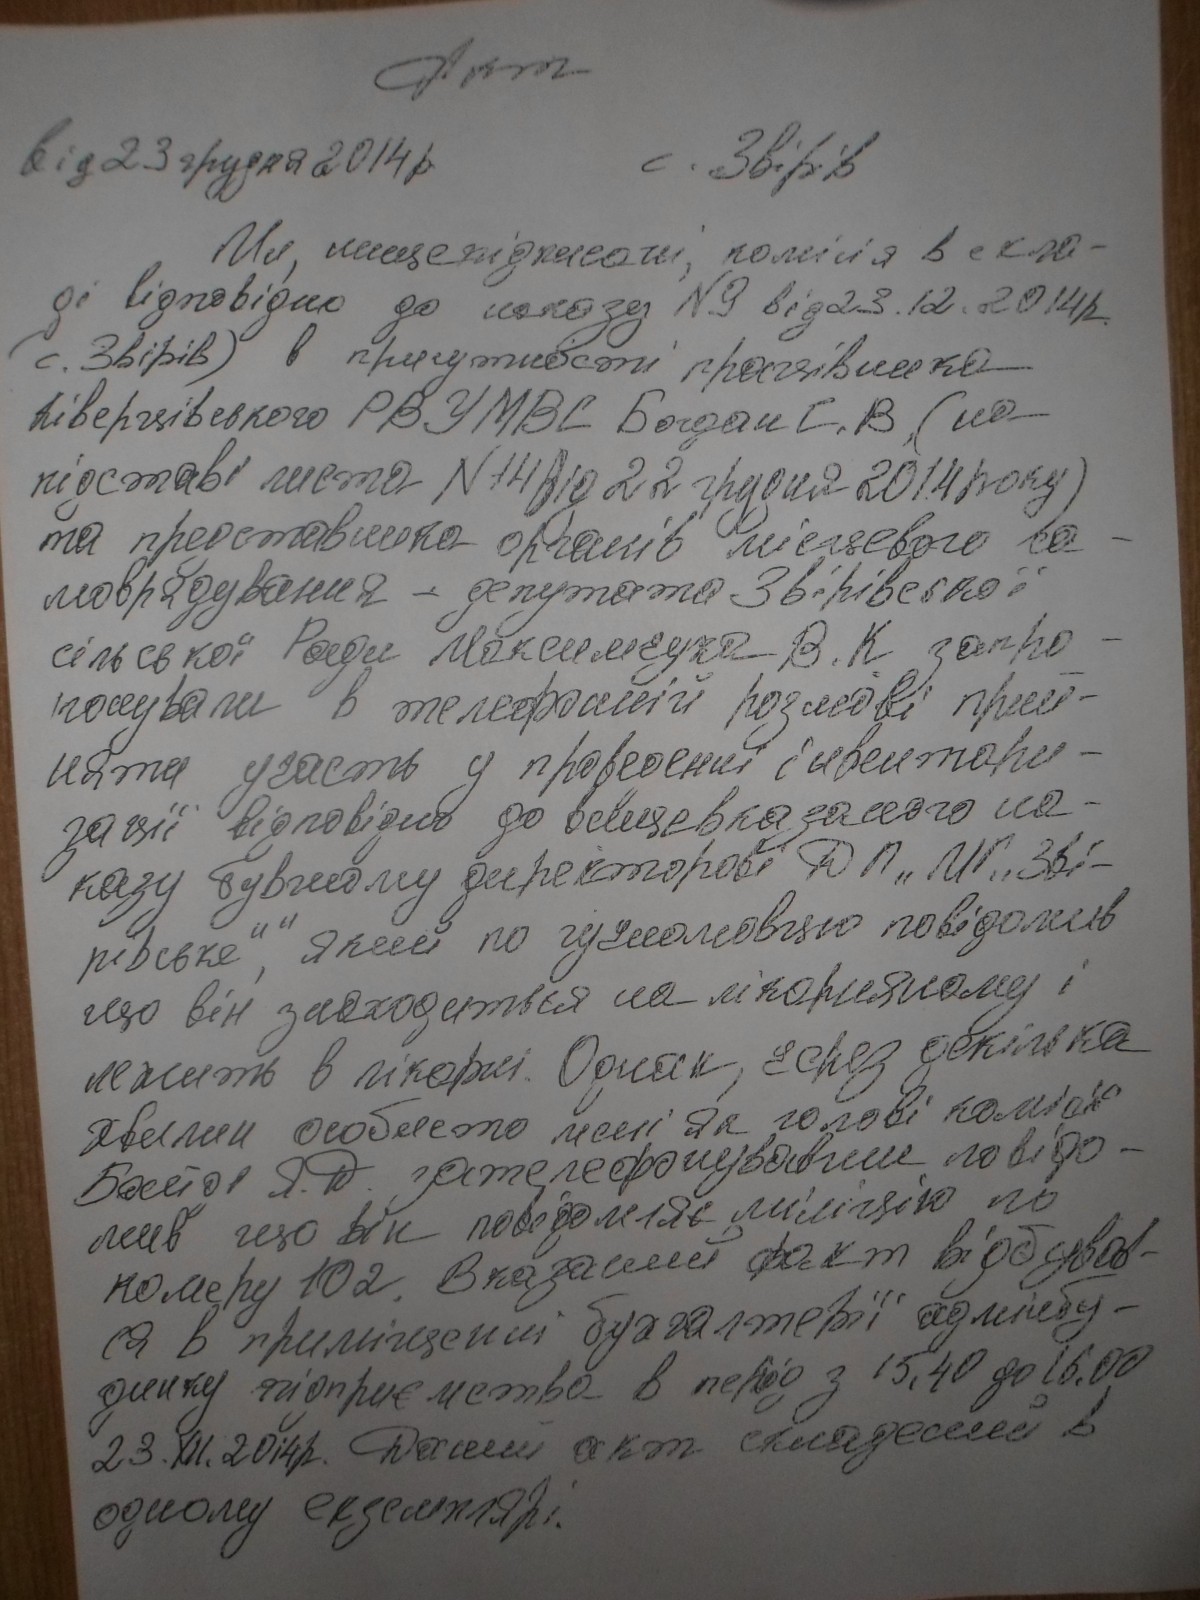 Акт
від 23 грудня 2014р с. Звірів
Ми, нищепідписані, комісія в скла-
ді відповідно до наказу N9 від 23.12.2014р.
(с. Звірів) в присутності працівника
Ківерцівського РВУМВС Богдан С.В. (на
підставі листа N14 від 22 грудня 2014року)
та представника органів місцевого са-
моврядування - депутата Звірівської
сільської Ради Максимчука В.К запро-
понували в телефонній розмові прий-
няти участь у проведенні інвентари-
зації відповідно до вищевказаного на-
казу бувшому директорові ДП „МП „Зві-
рівське““, який по гучномовцю повідомив
що він знаходиться на лікарняному і
лежить в лікарні. Однак, через декілька
хвилин особисто мені як голові комісії
Я.Д. зателефонувавши повідо-
мив що він повідомляє міліцію по
номеру 102. Вказаний факт відбував-
ся в приміщенні бухгалтерії адмінбу-
динку підприємства в період з 15.40 до 16.00
23.XII.2014р. Даний акт складений в
одному екземплярі.